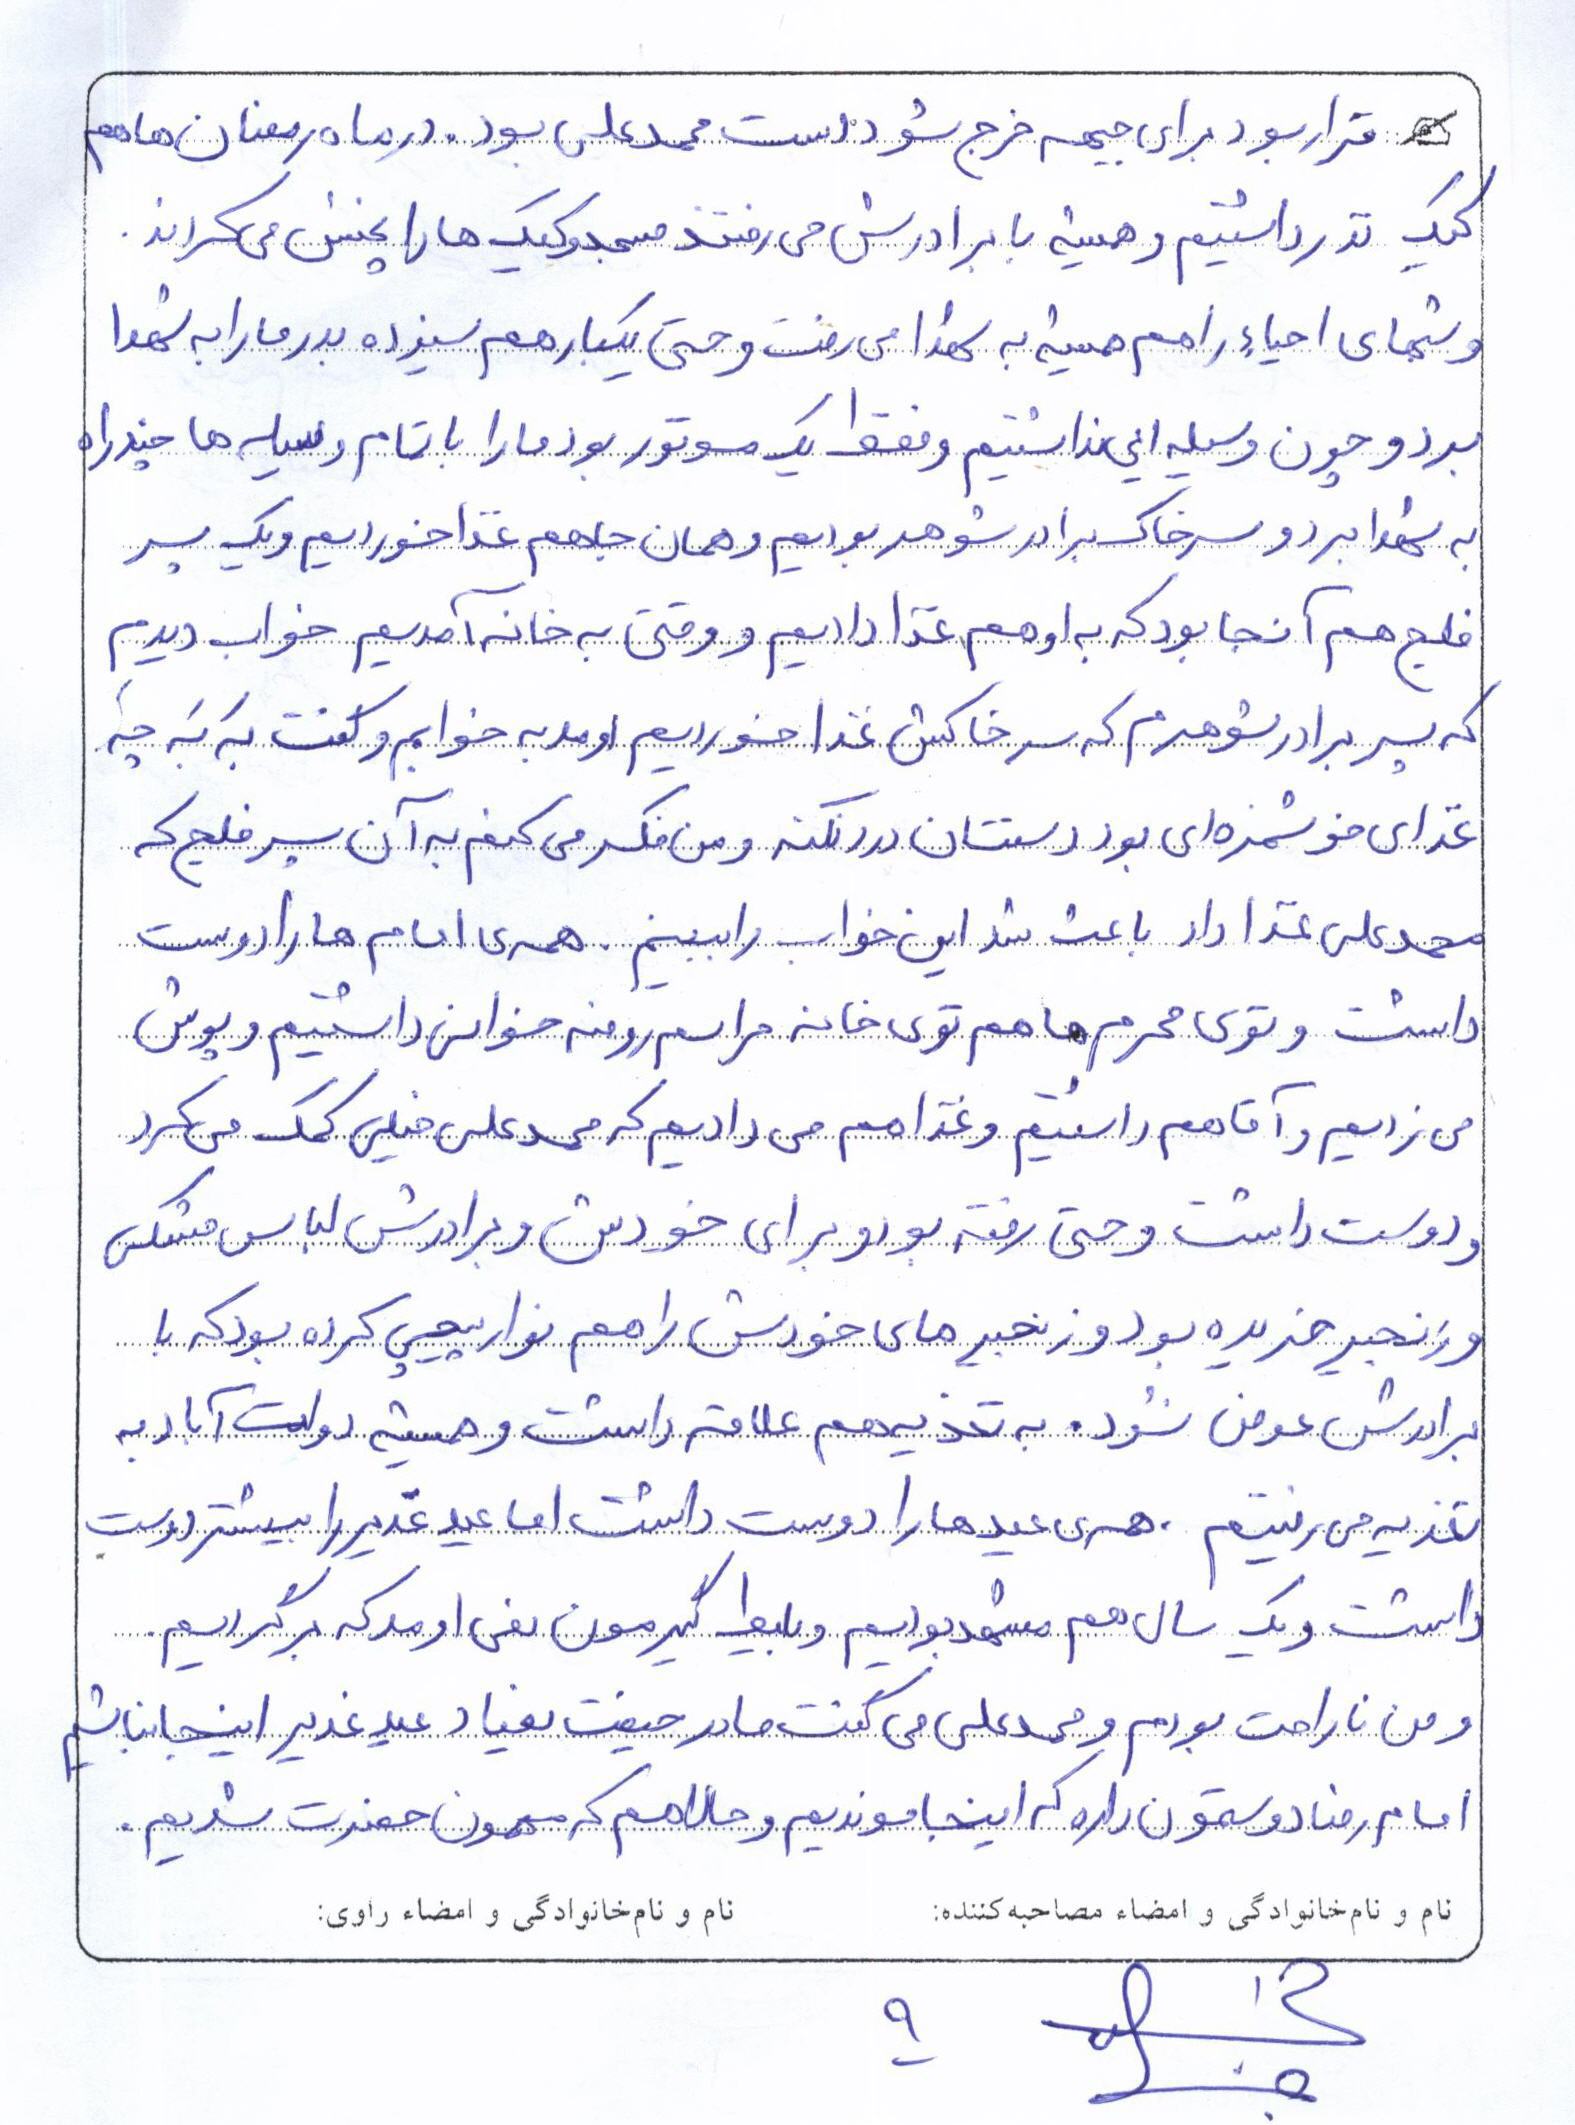 قرار بود برای جبهه خرج شود دست محمدعلی بود. در ماه رمضان ها هم
کیک نذر داشتیم و همیشه با برادرش می رفتند مسجد و کیک ها را پخش می کردند.
و شبهای احیاء را هم همیشه به شهدا می رفت و حتی یکبار هم سیزده بدر ما را به شهدا
برد و چون وسیله ایی نداشتیم و فقط یک موتور بود ما را با تمام وسیله ها چند راه
به شهدا برد و سر خاک برادر شوهر بودیم و همان جا هم غذا خوردیم و یک پسر
فلج هم آنجا بود که به او هم غذا دادیم و وقتی به خانه آمدیم خواب دیدم
که پسر برادر شوهرم که سر خاکش غذا خوردیم اومد به خوابم و گفت بَه بَه چه
غذای خوشمزه ای بود دستتان درد نکنه و من فکر می کنم به آن پسر فلج که
محمدعلی غذا داد باعث شد این خواب را ببینم. همه ی امام ها را دوست
داشت و توی محرم ها هم توی خانه مراسم روضه خوانی داشتیم و پوش
می زدیم و آقا هم داشتیم و غذا هم می دادیم که محمدعلی خیلی کمک می کرد
و دوست داشت و حتی رفته بود و برای خودش و برادرش لباس مشکی
و زنجیر خریده بود و زنجیر های خودش را هم نوار پیچی کرده بود که با
برادرش عوض نشود. به تعذیه هم علاقه داشت و همیشه دولت آباد به
تعذیه می رفتیم. همه ی عید ها را دوست داشت اما عید غدیر را بیشتر دوست
داشت و یک سال هم مشهد بودیم و بلیط گیرمون نمی اومد که برگردیم.
و من ناراحت بودم و محمدعلی می گفت مادر حیفت نمیاد عید غدیر اینجا نباشیم
امام رضا دوستمون داره که اینجا موندیم و حالا هم که مهمون حضرت شدیم.
نام و نام‌خانوادگی و امضاء مصاحبه‌کننده: نام و نام‌خانوادگی و امضاء راوی:
۹